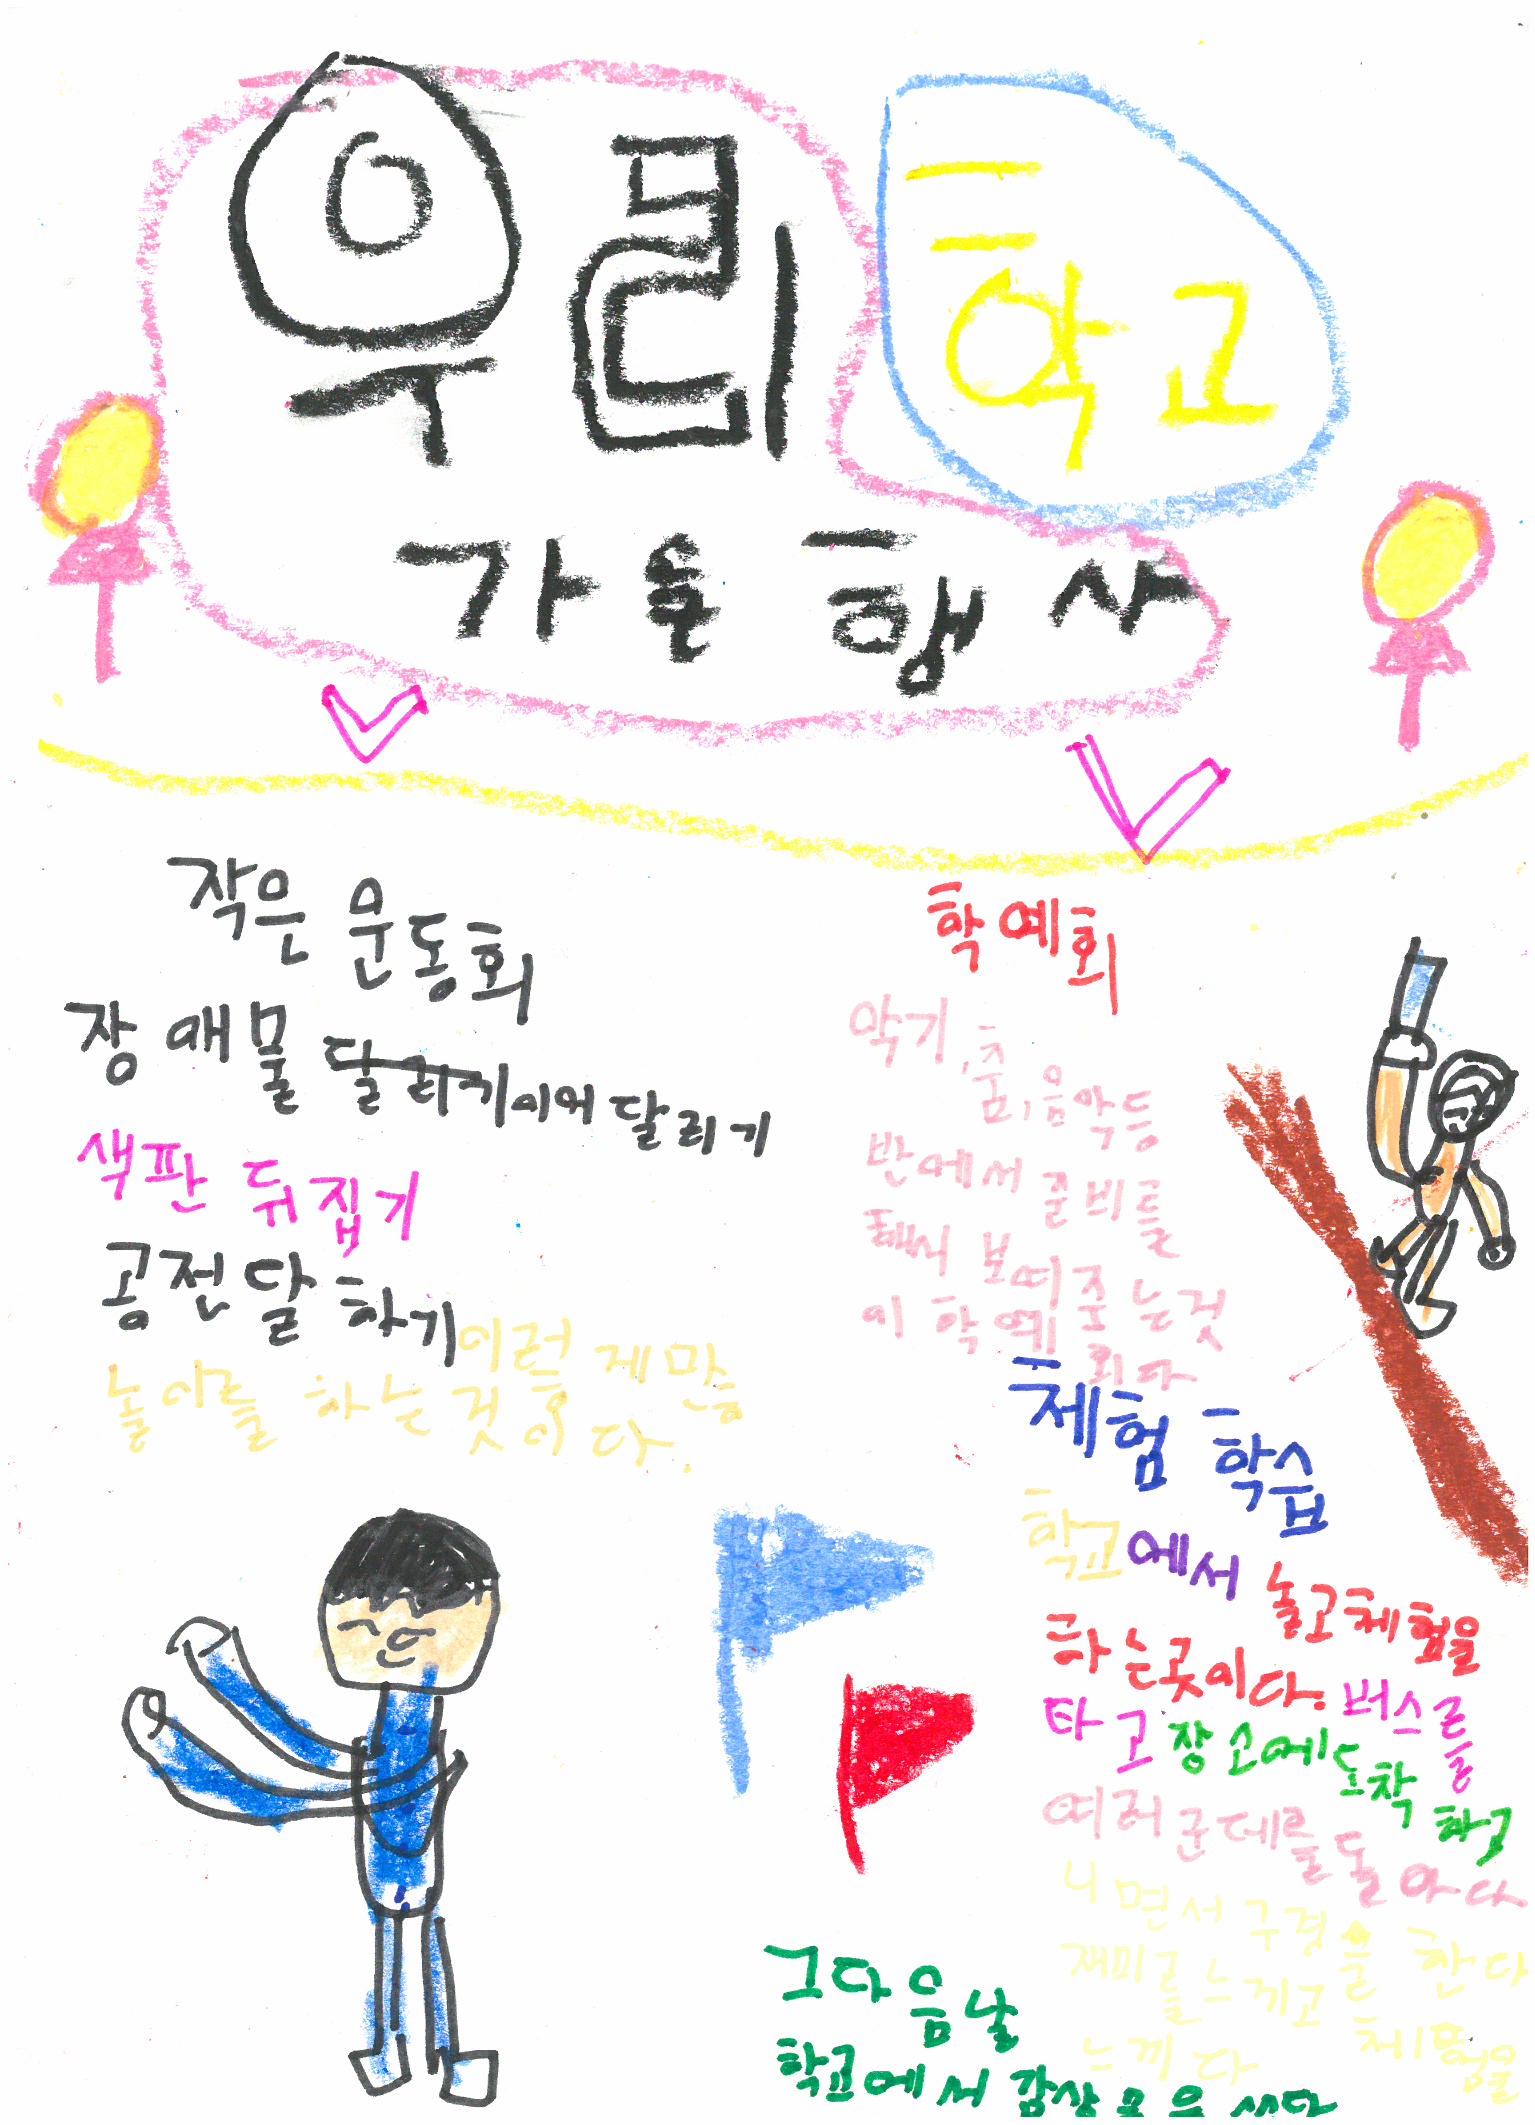 우리 학교
가을 행사
작은 운동회
장애물 달리기 이어달리기
색판 뒤집기
공전달 하기 이런 게만
놀이를 하는 것이다.
학예회
악기, 춤, 음악등
반에서 준비를
해서 보여주는것
이 학예회다
체험 학습
학교에서 놀고체험을
하는곳이다. 버스를
타고 장소에도착 하고
여러군데를돌아다
니면서 구경을 한다
재미를느끼고 체험을
느끼다
그다음날
학교에서 감상 쓰다